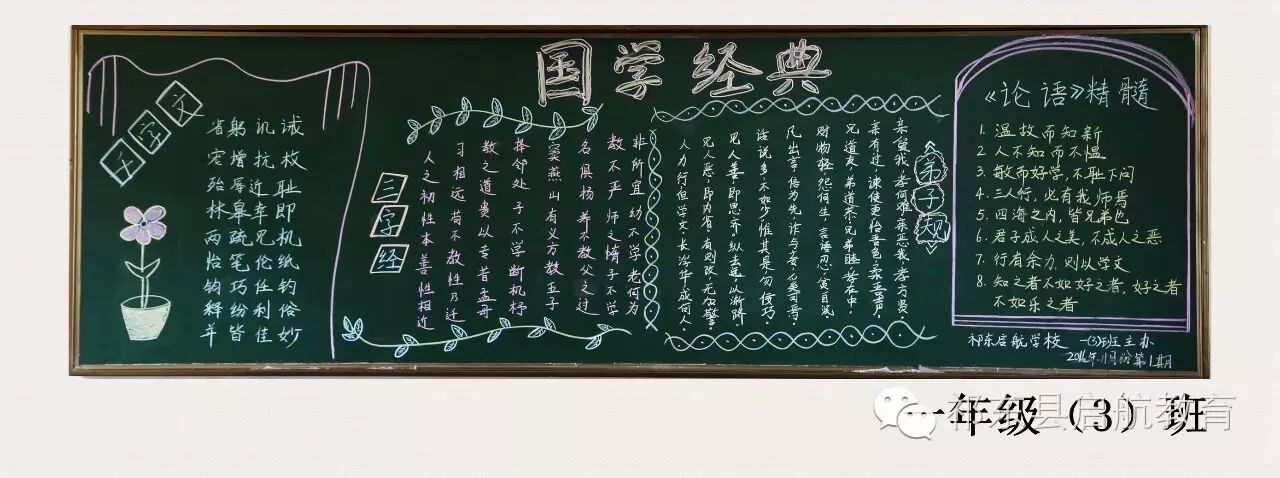 国学经典
千字文
省躬讥诫
宠增抗极
殆辱近耻
林皋幸即
两疏见机
恬笔伦纸
钧巧任钓
释纷利俗
并皆佳妙
三字经
人之初性本善性相近
习相远苟不教性乃迁
教之道贵以专昔孟母
择邻处子不学断机杼
窦燕山有义方教五子
名俱扬养不教父之过
教不严师之惰子不学
非所宜幼不学老何为
弟子规
亲爱我,孝何难;亲恶我,孝方贤。
亲有过,谏使更,怡吾色,柔吾声。
兄道友,弟道恭,兄弟睦,孝在中。
财物轻,怨何生,言语忍,忿自泯
凡出言,信为先,诈与妄,奚可焉。
话说多,不如少,惟其是,勿佞巧。
见人善,即思齐,纵去远,以渐跻。
见人恶,即内省,有则改,无加警。
人力行,但学文,长浮华,成何人。
《论语》精髓
1. 温故而知新
2. 人不知而不愠
3. 敏而好学,不耻下问
4. 三人行,必有我师焉
5. 四海之内,皆兄弟也
6. 君子成人之美,不成人之恶
7. 行有余力,则以学文
8. 知之者不如好之者,好之者
不如乐之者
祁东启航学校 一(3)班主办
2016年11月份第1期
一年级(3)班
祁东县启航教育